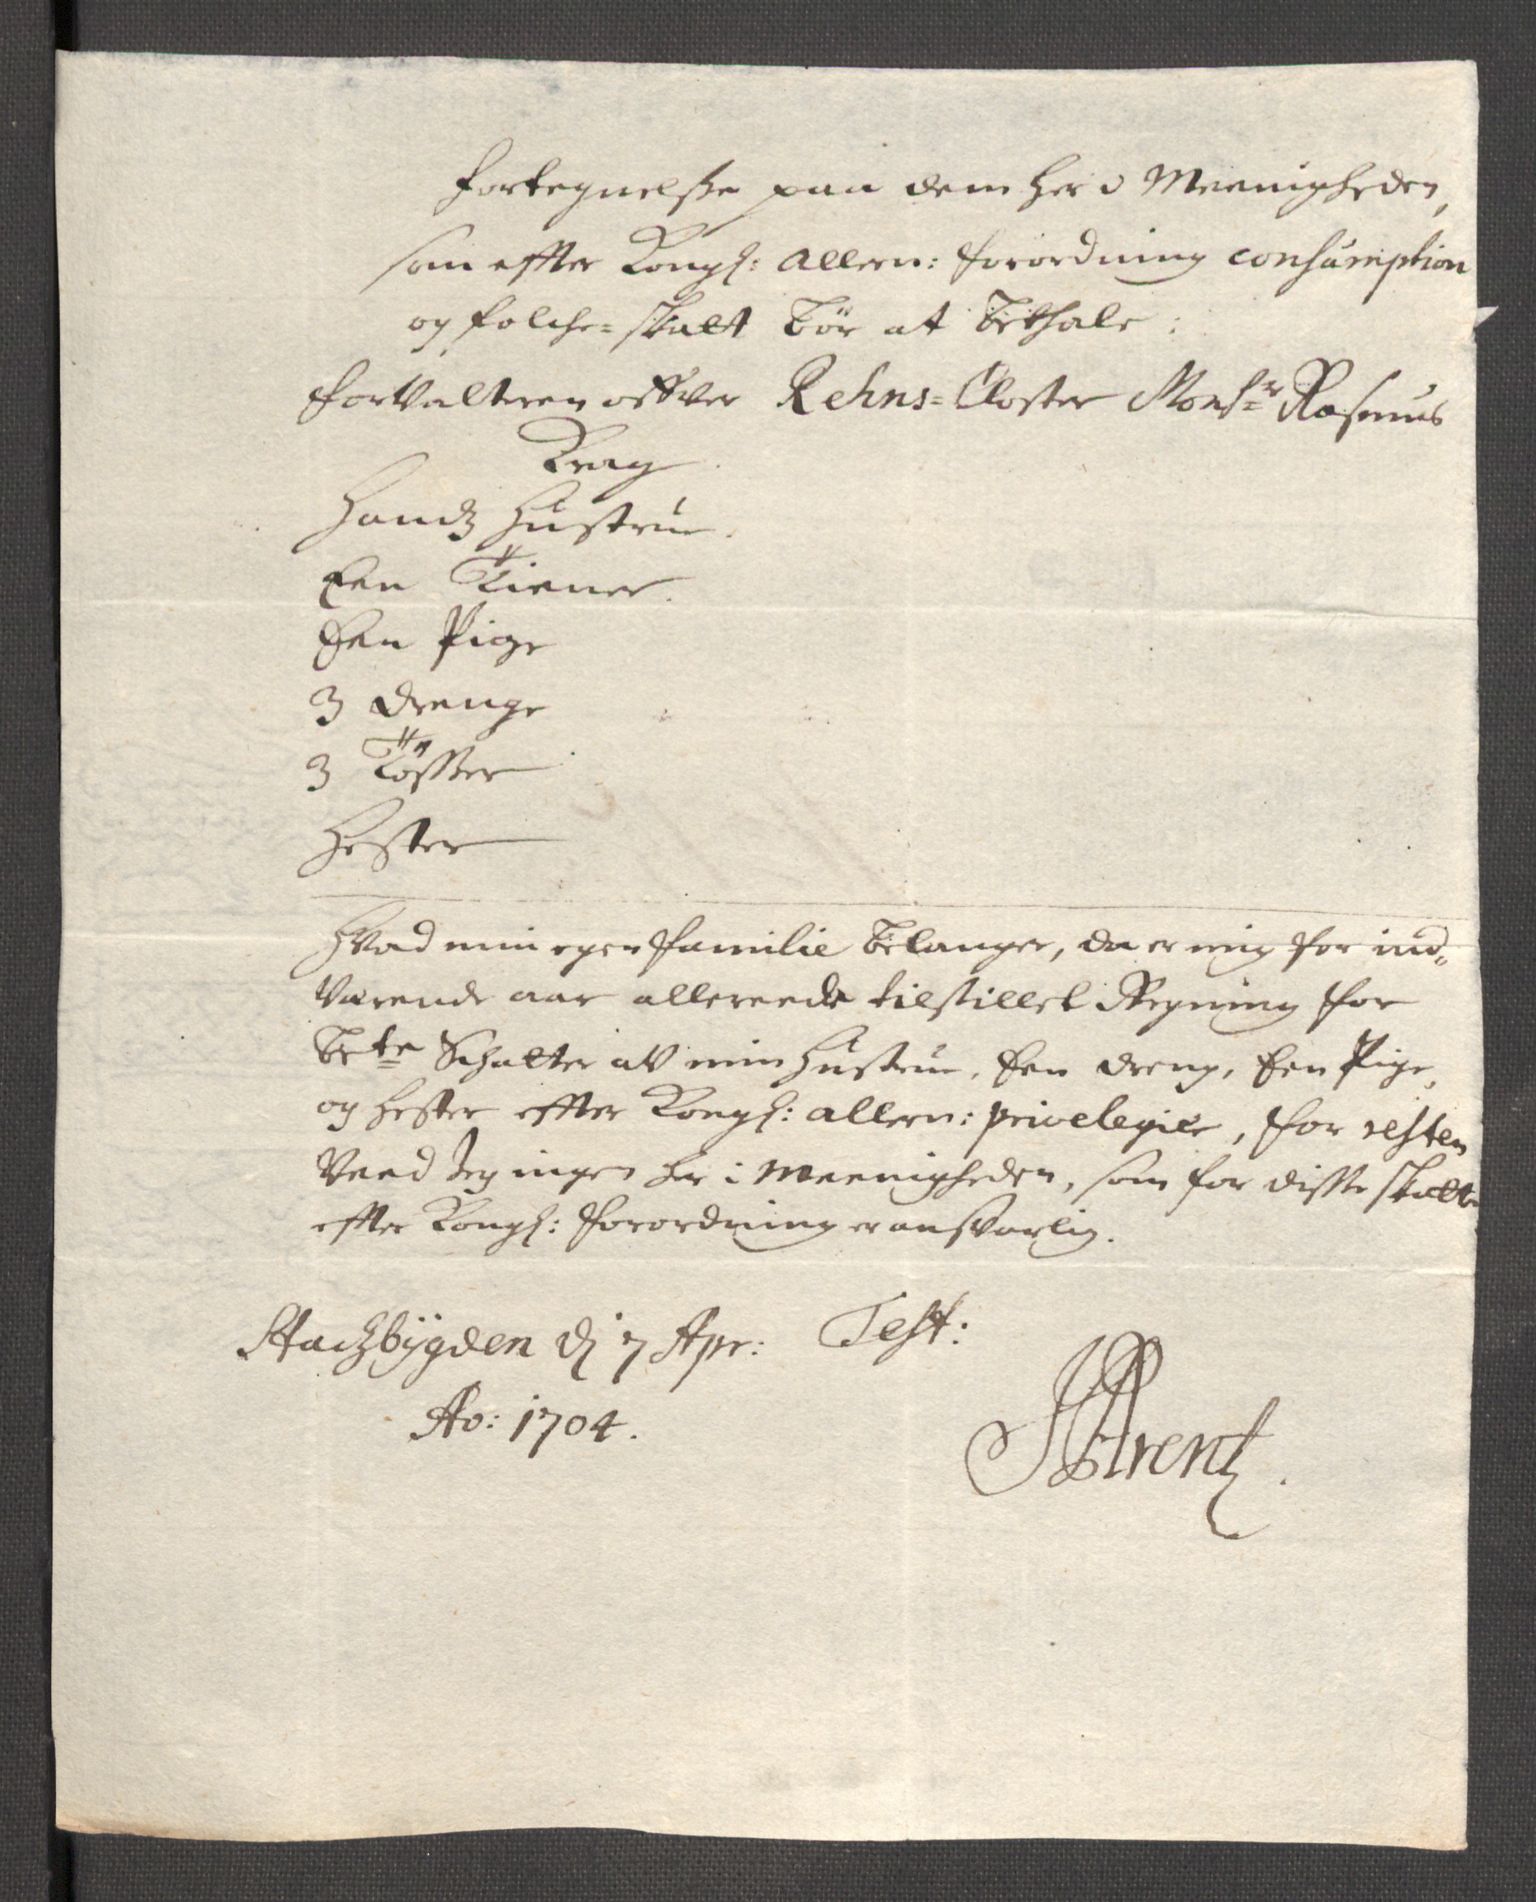 Fortegnelsse paa dem her i Meenigheden,
som effter Kongl: allern: forordning consumption
og folche-skatt bör at bethale:
Forvalteren offver Rehns-Closter Monsr Rasmus
Krag.
Handz Hustrue.
Een Tiener.
Een Pige
3 Drenge
3 Tösser
Hester
Hvad min egen familie belanger, da er mig for ind-
værende aar allereede tilstillet Regning for
bete Schatter av min Hustrue, Een dreng, Een Pige,
og hester effter Kongl: allern: privelegier, for resten
veed Jeg ingen her i meenigheden, som for disse skatter
effter Kongl: forordning er ansvarlig.
Stadzbÿgden dj 7 Apr: Test:
Ao: 1704.
Arentz.